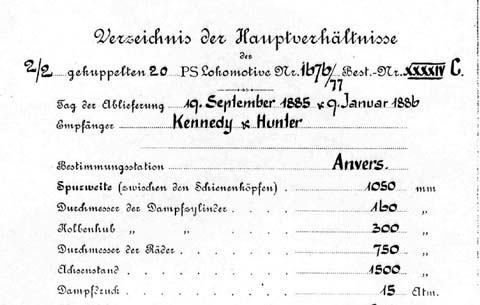 Verzeichnis der Hauptverhältnisse
der
2/2 gekuppelten 20 PS Lokomotive Nr. 1676/77 Best.-Nr. XXXXIV C.
Tag der Ablieferung 19. September 1885 & 9. Januar 1886
Empfänger Kennedy & Hunter
Bestimmungsstation Anvers.
Spurweite (zwischen den Schienenköpfen) . 1050 mm
Durchmesser der Dampfzylinder . . . . 160 „
Kolbenhub „ „ . . . . 300 „
Durchmesser der Räder . . . . . 750 „
Achsenstand . . . . . . . 1500 „
Dampfdruck . . . . . . . 15 Atm.